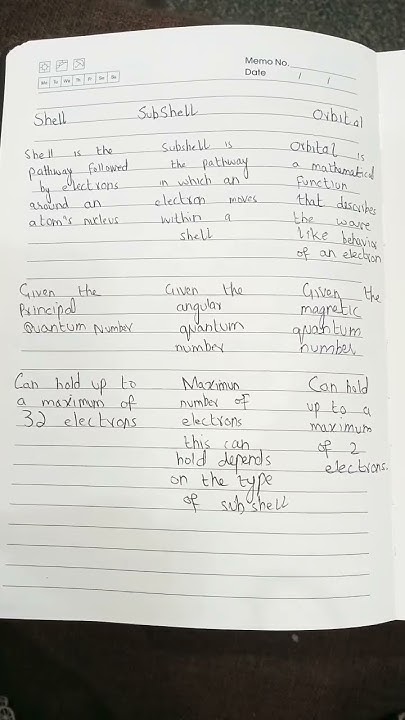 Memo No.
Date / /
Mo Tu We Th Fr Sa Su
Shell SubShell Orbital
Shell is the
pathway followed
by electrons
around an
atom's nucleus
Subshell is
the pathway
in which an
electron moves
within a
shell
Orbital is
a mathematical
function
that describes
the wave
like behavior
of an electron
Given the
Principal
Quantum Number
Given the
angular
quantum
number
Given the
magnetic
quantum
number
Can hold up to
a maximum of
32 electrons
Maximun
number of
electrons
this can
hold depends
on the type
of subshell
Can hold
up to a
maximum
of 2
electrons.